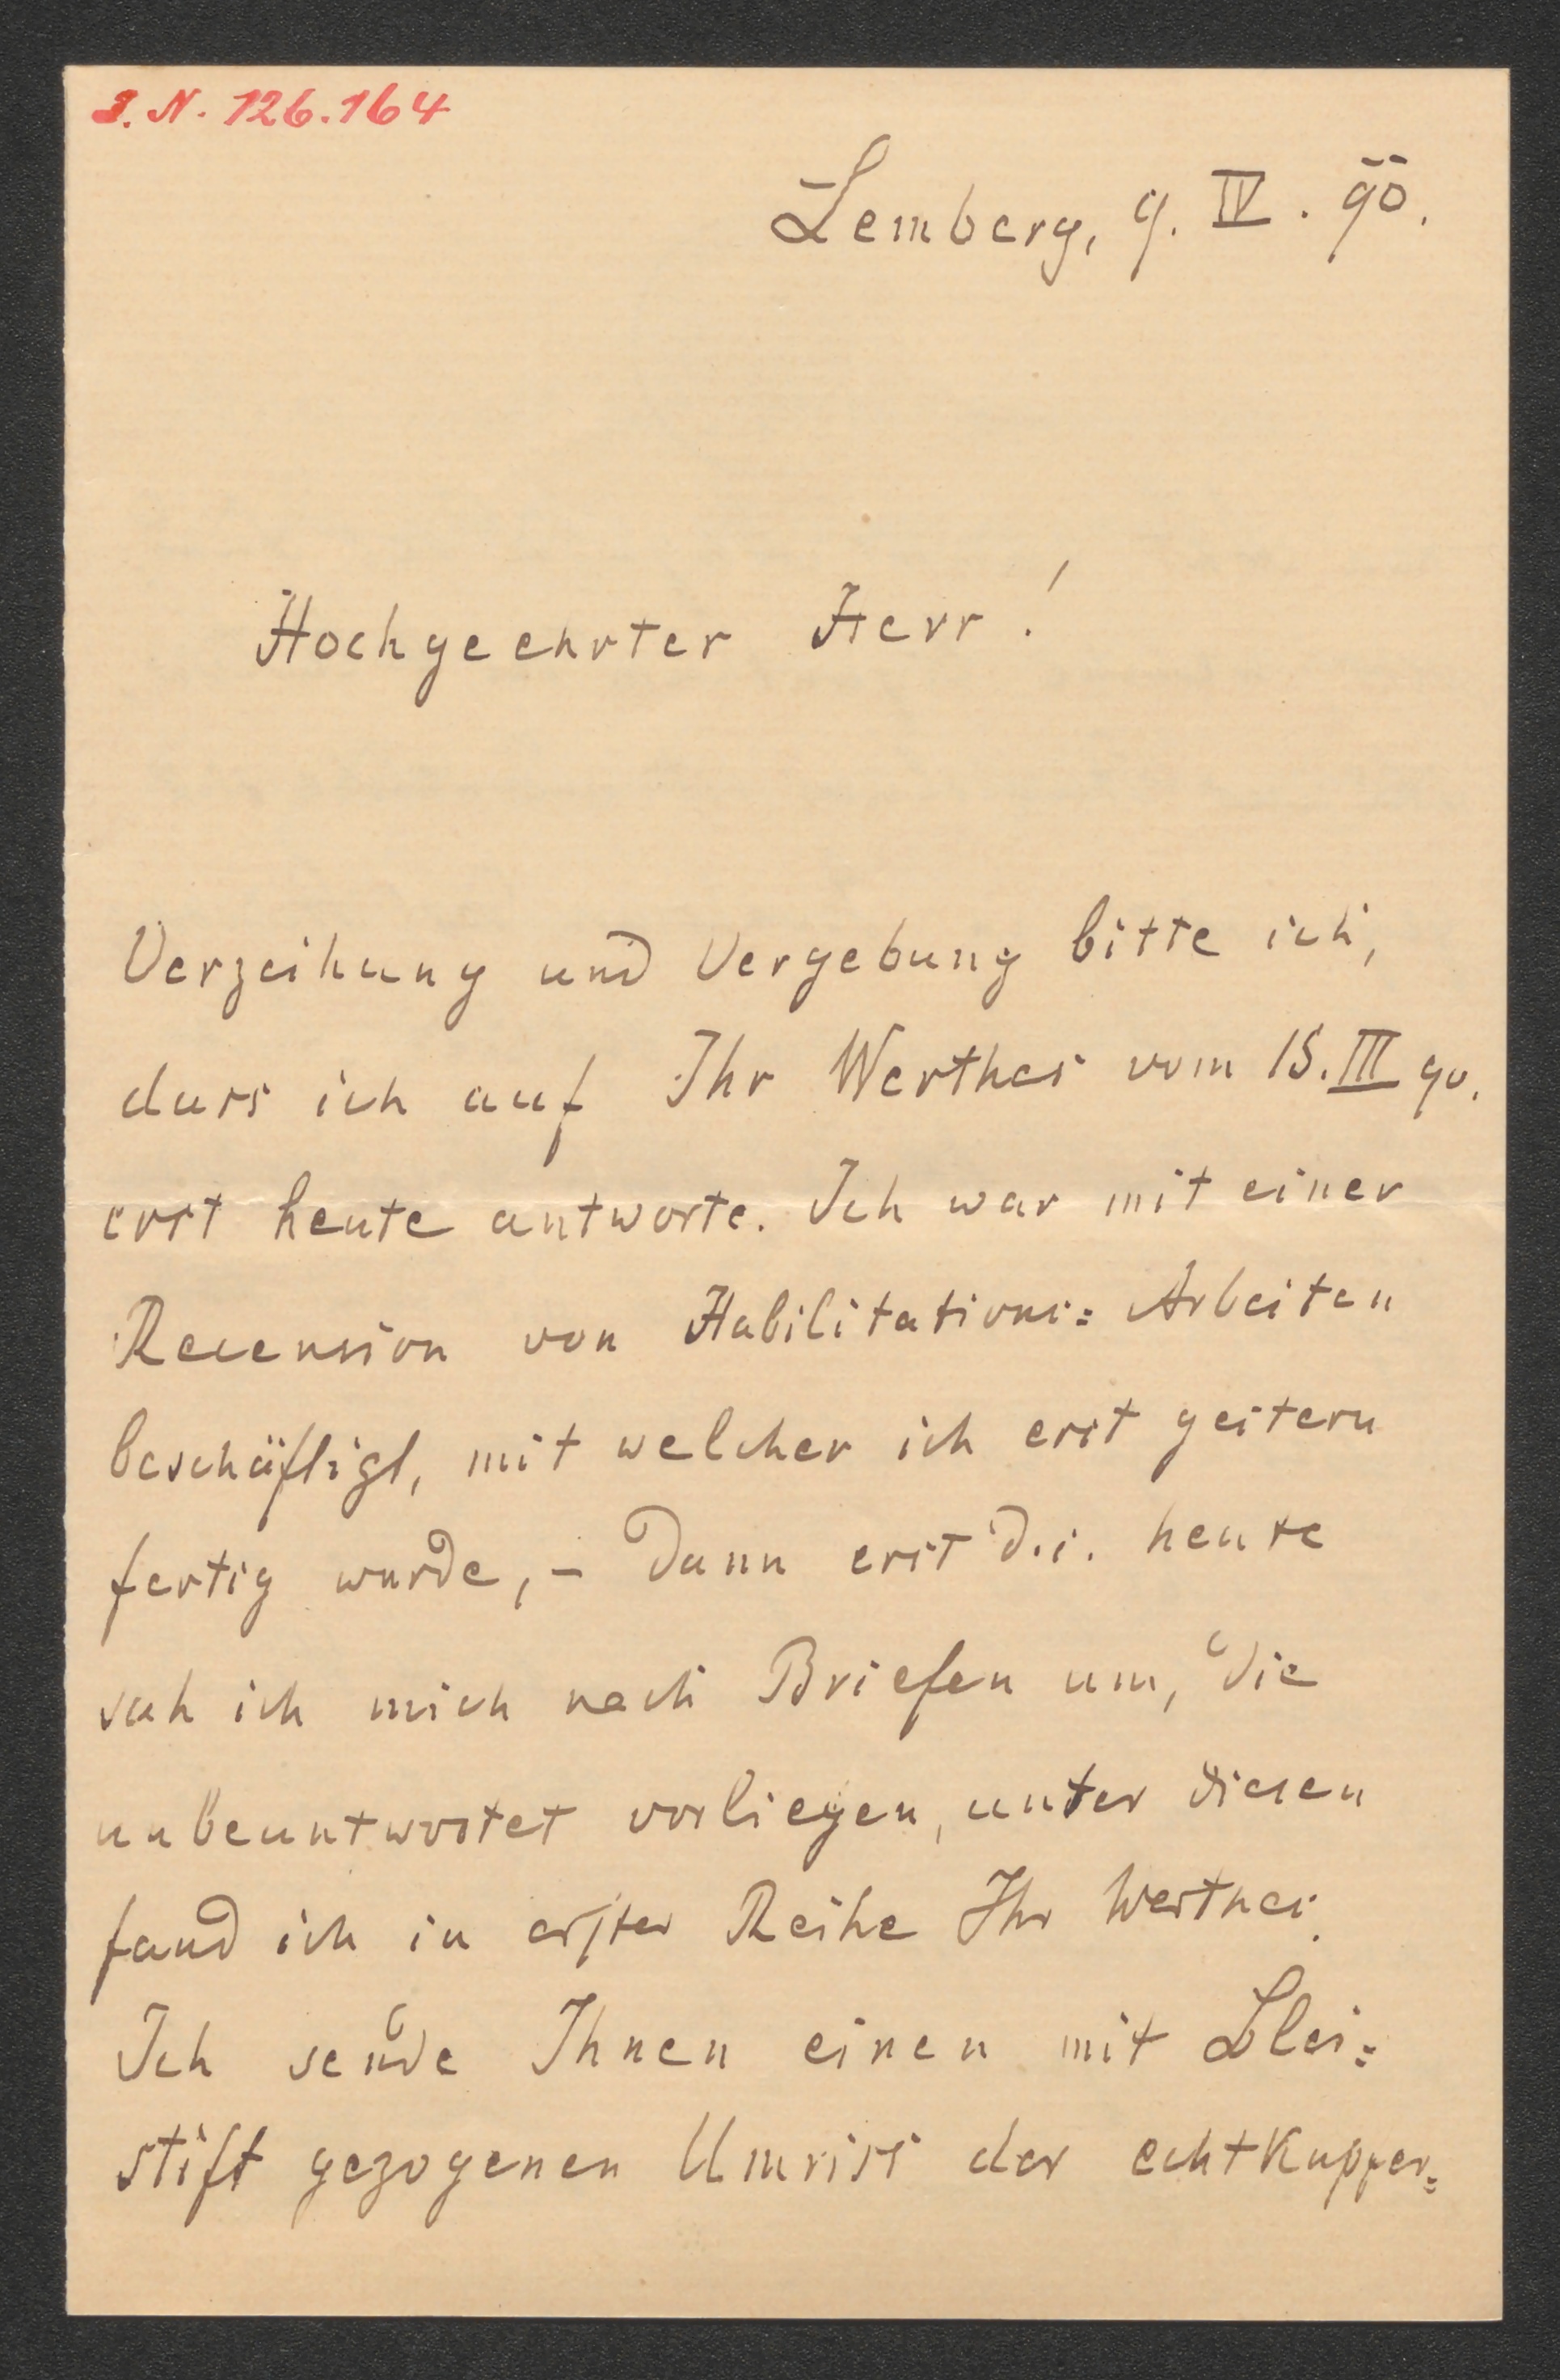 I. N. 126.164
Lemberg, 9. IV. 90.
Hochgeehrter Herr!
Verzeihung und Vergebung bitte ich,
dass ich auf Ihr Werthes vom 15. III 90.
erst heute antworte. Ich war mit einer
Recension von Habilitations= Arbeiten
beschäftigt, mit welcher ich erst gestern
fertig wurde, - Dann erst d. i. heute
sah ich mich nach Briefen um, die
unbeantwortet vorliegen, unter diesen
fand ich in erster Reihe Ihr Werthes.
Ich sende Ihnen einen mit Blei=
stift gezogenen Umriss der echt Kupfer=